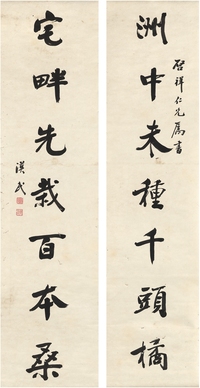 洲中未種千頭橘
啟祥仁兄屬書
宅畔先栽百本桑
漢民